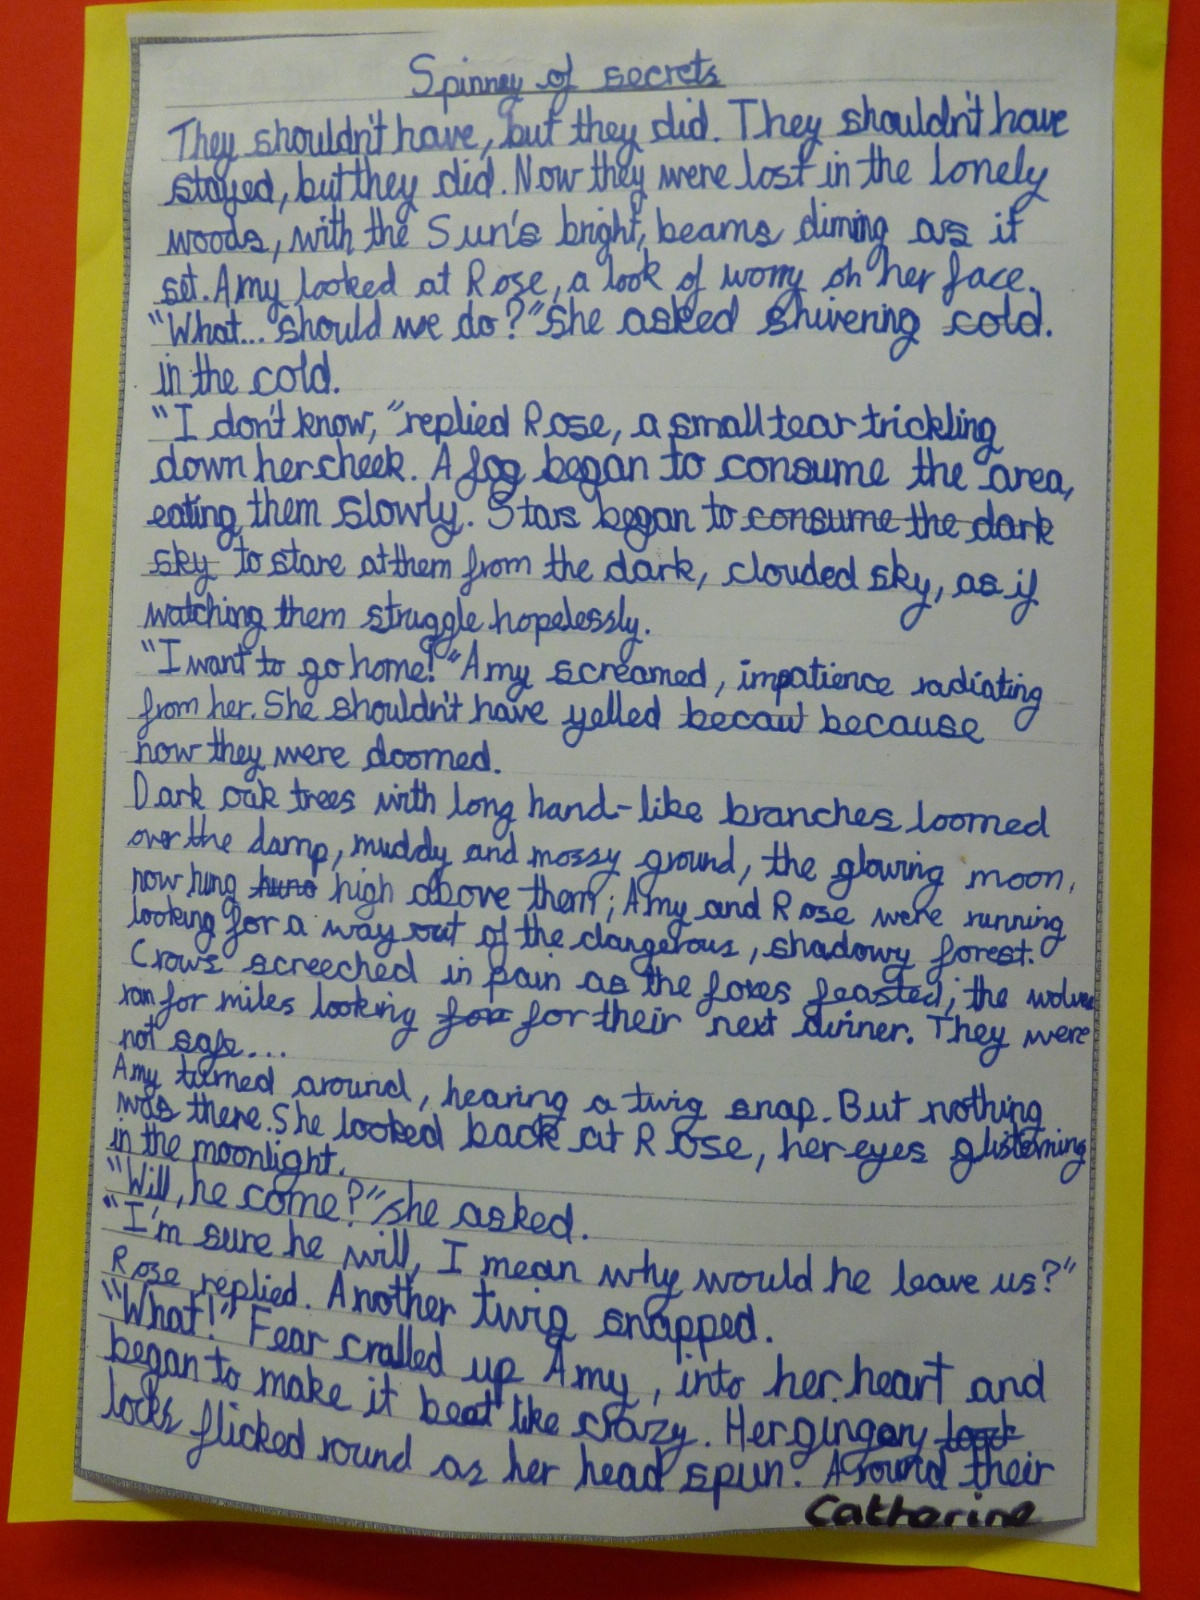 Spinney of secrets
They shouldn't have, but they did. They shouldn't have
stayed, but they did. Now they were lost in the lonely
woods, with the Sun's bright, beams diming as it
set. Amy looked at Rose, a look of worry on her face.
"What... should we do?" she asked shivering cold.
in the cold.
"I don't know," replied Rose, a small tear trickling
down her cheek. A fog began to consume the area,
eating them slowly. Stars began to consume the dark
sky to stare at them from the dark, clouded sky, as if
watching them struggle hopelessly.
"I want to go home!" Amy screamed, impatience radiating
from her. She shouldn't have yelled becaut because
now they were doomed.
Dark oak trees with long hand-like branches loomed
over the damp, muddy and mossy ground, the glowing moon,
now hung hung high above them; Amy and Rose were running
looking for a way out of the dangerous, shadowy forest.
Crows screeched in pain as the foxes feasted; the wolves
ran for miles looking for for their next dinner. They were
not safe...
Amy turned around, hearing a twig snap. But nothing
was there. She looked back at Rose, her eyes glistening
in the moonlight.
"Will, he come?" she asked.
"I'm sure he will, I mean why would he leave us?"
Rose replied. Another twig snapped.
"What!" Fear cralled up Amy, into her heart and
began to make it beat like crazy. Her gingery
locks flicked round as her head spun. Around their
Catherine